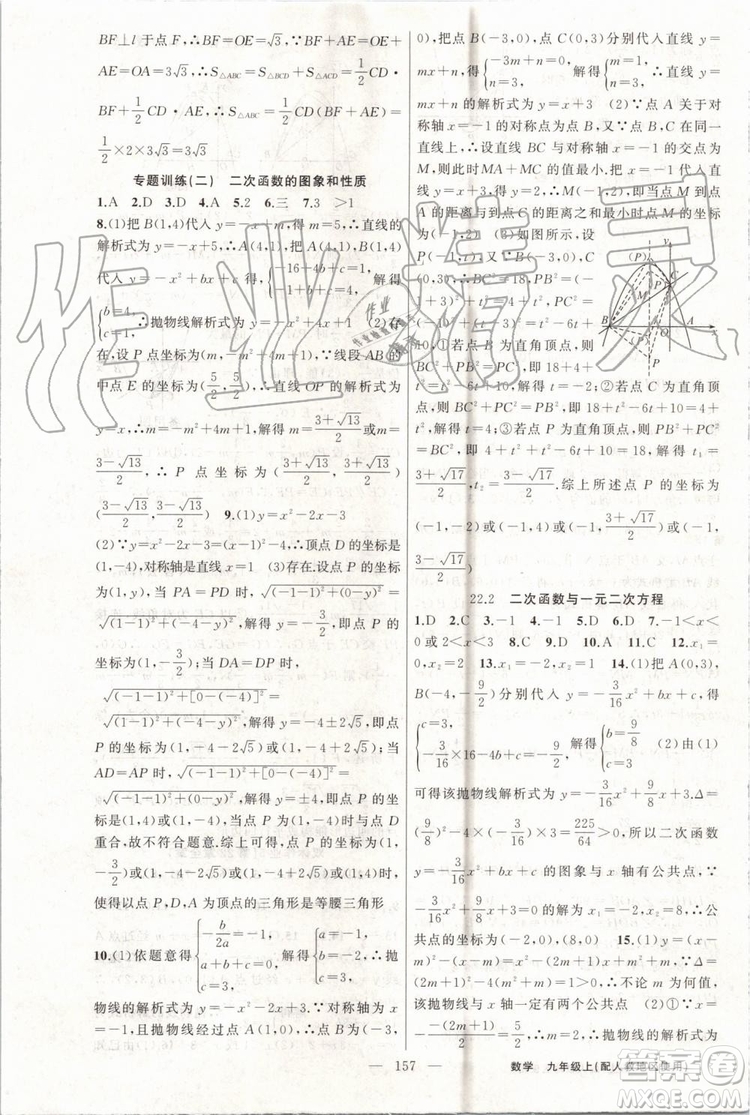 BF⊥l于点F,∴BF=OE=√3,∴BF+AE=OE+
AE=OA=3√3,∴S△ABC=S△BCD+S△ACD=1/2CD·
BF+1/2CD·AE,∴S△ABC=1/2CD(BF+AE)=
1/2×2×3√3=3√3
专题训练(二) 二次函数的图象和性质
1.A 2.D 3.D 4.A 5.2 6.三 7.3 >1
8.(1)把B(1,4)代入y=-x+m,得m=5,∴直线的
解析式为y=-x+5,∴A(4,1),把A(4,1),B(1,4)
代入y=-x²+bx+c,得{-16+4b+c=1, -1+b+c=4, 解得
{b=4, c=1, ∴抛物线解析式为y=-x²+4x+1 (2)存
在,设P点坐标为(m,-m²+4m+1),∵线段AB的
中点E的坐标为(5/2,5/2),∴直线OP的解析式为
y=x,∴m=-m²+4m+1,解得m=(3+√13)/2或m=
(3-√13)/2,∴P点坐标为((3+√13)/2,(3+√13)/2)或
((3-√13)/2,(3-√13)/2) 9.(1)y=x²-2x-3
(2)∵y=x²-2x-3=(x-1)²-4,∴顶点D的坐标是
(1,-4),对称轴是直线x=1 (3)存在.设点P的坐
标为(1,y),当PA=PD时,√((-1-1)²+(0-y)²)
=√((1-1)²+(-4-y)²),解得y=-3/2,即点P的
坐标为(1,-3/2);当DA=DP时,
√((-1-1)²+[0-(-4)]²)=
√((1-1)²+(-4-y)²),解得y=-4±2√5,即点
P的坐标为(1,-4-2√5)或(1,-4+2√5);当
AD=AP时,√((-1-1)²+[0-(-4)]²)=
√((-1-1)²+(0-y)²),解得y=±4,即点P的
坐标是(1,4)或(1,-4),当点P为(1,-4)时与点D
重合,故不符合题意.综上可得,存在点P(1,-
3/2)或(1,-4-2√5)或(1,-4+2√5)或(1,4),
使得以点P,D,A为顶点的三角形是等腰三角形
10.(1)依题意得{-b/2a=-1, a+b+c=0, c=3, 解得{a=-1, b=-2, c=3, ∴抛
物线的解析式为y=-x²-2x+3.∵对称轴为x=
-1,且抛物线经过点A(1,0),∴点B为(-3,
0),把点B(-3,0),点C(0,3)分别代入直线y=
mx+n,得{-3m+n=0, n=3, 解得{m=1, n=3, ∴直线y=
mx+n的解析式为y=x+3 (2)∵点A关于对
称轴x=-1的对称点为点B,又∵点M在同一
直线上,∴直线BC与对称轴x=-1的交点为
M,此时MA+MC的值最小.把x=-1代入直线
y=x+3得y=2,∴M(-1,2),即当点M到点
A的距离与到点C的距离之和最小时点M的坐标
为(-1,2) (3)如图所示.设
P(-1,t),又∵B(-3,0),C
(0,3),∴BC²=18,PB²=(-1
+3)²+t²=4+t²,PC²=(-1)²
+(t-3)²=t²-6t+10
y P C P B O A x P
①若点B为直角顶点,则BC²+PB²=PC²,即18+
4+t²=t²-6t+10,解得t=-2;②若点C为直角顶
点,则BC²+PC²=PB²,即18+t²-6t+10=4+t²,
解得t=4;③若点P为直角顶点,则PB²+PC²=
BC²,即4+t²+t²-6t+10=18,解得t₁=
(3+√17)/2,t₂=(3-√17)/2.综上所述点P的坐标为
(-1,-2)或(-1,4)或(-1,(3+√17)/2)或(-1,
(3-√17)/2)
22.2 二次函数与一元二次方程
1.D 2.C 3.-1 4.-1 5.D 6.B 7.-1<x<
0或2<x<3 8.B 9.D 10.A 11.C 12.x₁=
0,x₂=2 13.x₁=-1,x₂=5 14.(1)把A(0,3),
B(-4,-9/2)分别代入y=-3/16x²+bx+c,得
{c=3, -3/16×16-4b+c=-9/2, 解得{b=9/8, c=3 (2)由(1)
可得该抛物线解析式为y=-3/16x²+9/8x+3.Δ=
(9/8)²-4×(-3/16)×3=225/64>0,所以二次函数
y=-3/16x²+bx+c的图象与x轴有公共点,∵
-3/16x²+9/8x+3=0的解为x₁=-2,x₂=8,∴公
共点的坐标是(-2,0),(8,0) 15.(1)y=(x-
m)²-(x-m)=x²-(2m+1)x+m²+m,∵Δ=
(2m+1)²-4(m²+m)=1>0,∴不论m为何值,
该抛物线与x轴一定有两个公共点 (2)①∵x=
-(-(2m+1))/2=5/2,∴m=2,∴抛物线的解析式为
— 157 — 数学 九年级上(配人教地区使用)
作业精灵